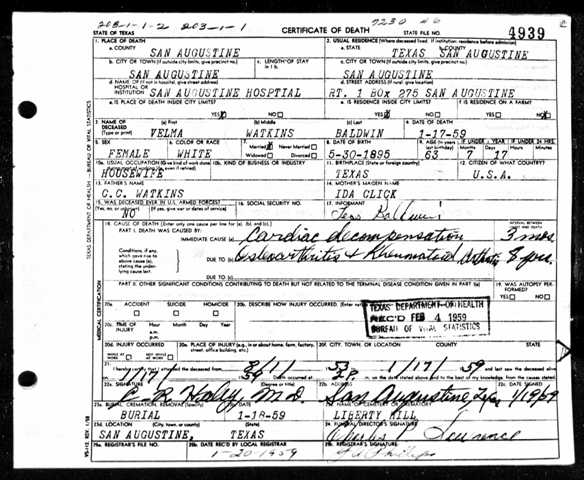 203-1-1-2 203-1-1
STATE OF TEXAS CERTIFICATE OF DEATH STATE FILE NO. 4939
1. PLACE OF DEATH 2. USUAL RESIDENCE (Where deceased lived. If institution: residence before admission)
a. COUNTY SAN AUGUSTINE a. STATE TEXAS b. COUNTY SAN AUGUSTINE
b. CITY OR TOWN (If outside city limits, give precinct no.) c. LENGTH OF STAY in 1 b. c. CITY OR TOWN (If outside city limits, give precinct no.)
SAN AUGUSTINE SAN AUGUSTINE
d. NAME OF (If not in hospital, give street address) HOSPITAL OR INSTITUTION d. STREET ADDRESS (If rural, give location)
SAN AUGUSTINE HOSPTIAL RT. 1 BOX 275 SAN AUGUSTINE
e. IS PLACE OF DEATH INSIDE CITY LIMITS? e. IS RESIDENCE INSIDE CITY LIMITS? f. IS RESIDENCE ON A FARM?
YES NO YES NO YES NO
3. NAME OF DECEASED (Type or print) (a) First (b) Middle (c) Last 4. DATE OF DEATH
VELMA WATKINS BALDWIN 1-17-59
5. SEX 6. COLOR OR RACE 7. Married Never Married 8. DATE OF BIRTH 9. AGE (In years last birthday) IF UNDER 1 YEAR IF UNDER 24 HRS.
FEMALE WHITE Widowed Divorced 5-30-1895 63 7 17
10a. USUAL OCCUPATION 10b. KIND OF BUSINESS OR INDUSTRY 11. BIRTHPLACE (State or foreign country) 12. CITIZEN OF WHAT COUNTRY?
HOUSEWIFE TEXAS U.S.A.
13. FATHER'S NAME 14. MOTHER'S MAIDEN NAME
G.C. WATKINS IDA CLICK
15. WAS DECEASED EVER IN U.S. ARMED FORCES? 16. SOCIAL SECURITY NO. 17. INFORMANT
(Yes, no, or unknown) (If yes, give war or dates of service)
NO
18. CAUSE OF DEATH (Enter only one cause per line for (a), (b), and (c).) INTERVAL BETWEEN ONSET AND DEATH
PART I. DEATH WAS CAUSED BY:
IMMEDIATE CAUSE (a) Cardiac decompensation 3 mos.
Conditions, if any, which gave rise to above cause (a), stating the underlying cause last. DUE TO (b) Osteoarthritis & Rheumatoid Arthritis 8 yrs.
DUE TO (c)
PART II. OTHER SIGNIFICANT CONDITIONS CONTRIBUTING TO DEATH BUT NOT RELATED TO THE TERMINAL DISEASE CONDITION GIVEN IN PART I(a) 19. WAS AUTOPSY PERFORMED?
YES NO
20a. ACCIDENT SUICIDE HOMICIDE 20b. DESCRIBE HOW INJURY OCCURRED.
TEXAS DEPARTMENT OF HEALTH
REC'D FEB 4 1959
BUREAU OF VITAL STATISTICS
20c. TIME OF INJURY Hour Month Day Year
a.m.
p.m.
20d. INJURY OCCURRED 20e. PLACE OF INJURY (e.g., in or about home, farm, factory, street, office building, etc.) 20f. CITY, TOWN, OR LOCATION COUNTY STATE
WHILE AT WORK NOT WHILE AT WORK
21. I hereby certify that I attended the deceased from 8/1 1953 to 1/17/59 and last saw the deceased alive
on 1/17 1959 Death occurred at m. on the date stated above, and to the best of my knowledge, from the causes stated.
22a. SIGNATURE (Degree or title) 22b. ADDRESS 22c. DATE SIGNED
M.D. San Augustine, Texas 1/19/59
23a. BURIAL, CREMATION, REMOVAL (Specify) 23b. DATE 23c. NAME OF CEMETERY OR CREMATORY
BURIAL 1-18-59 LIBERTY HILL
23d. LOCATION (City, town, or county) (State) 24. FUNERAL DIRECTOR'S SIGNATURE
SAN AUGUSTINE, TEXAS
25a. REGISTRAR'S FILE NO. 25b. DATE REC'D BY LOCAL REGISTRAR 25c. REGISTRAR'S SIGNATURE
1-20-1959 Phillips
TEXAS DEPARTMENT OF HEALTH — BUREAU OF VITAL STATISTICS
MEDICAL CERTIFICATION